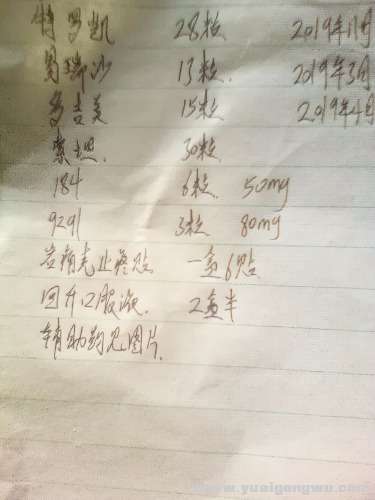 特罗凯 28粒 2019年11月
易瑞沙 13粒. 2019年3月
多吉美 15粒 2019年4月
索坦. 30粒
184 6粒 50mg
9291 3粒 80mg
岩痛克止疼贴 一备6贴
回升口服液. 2盒半
辅助药见图片.